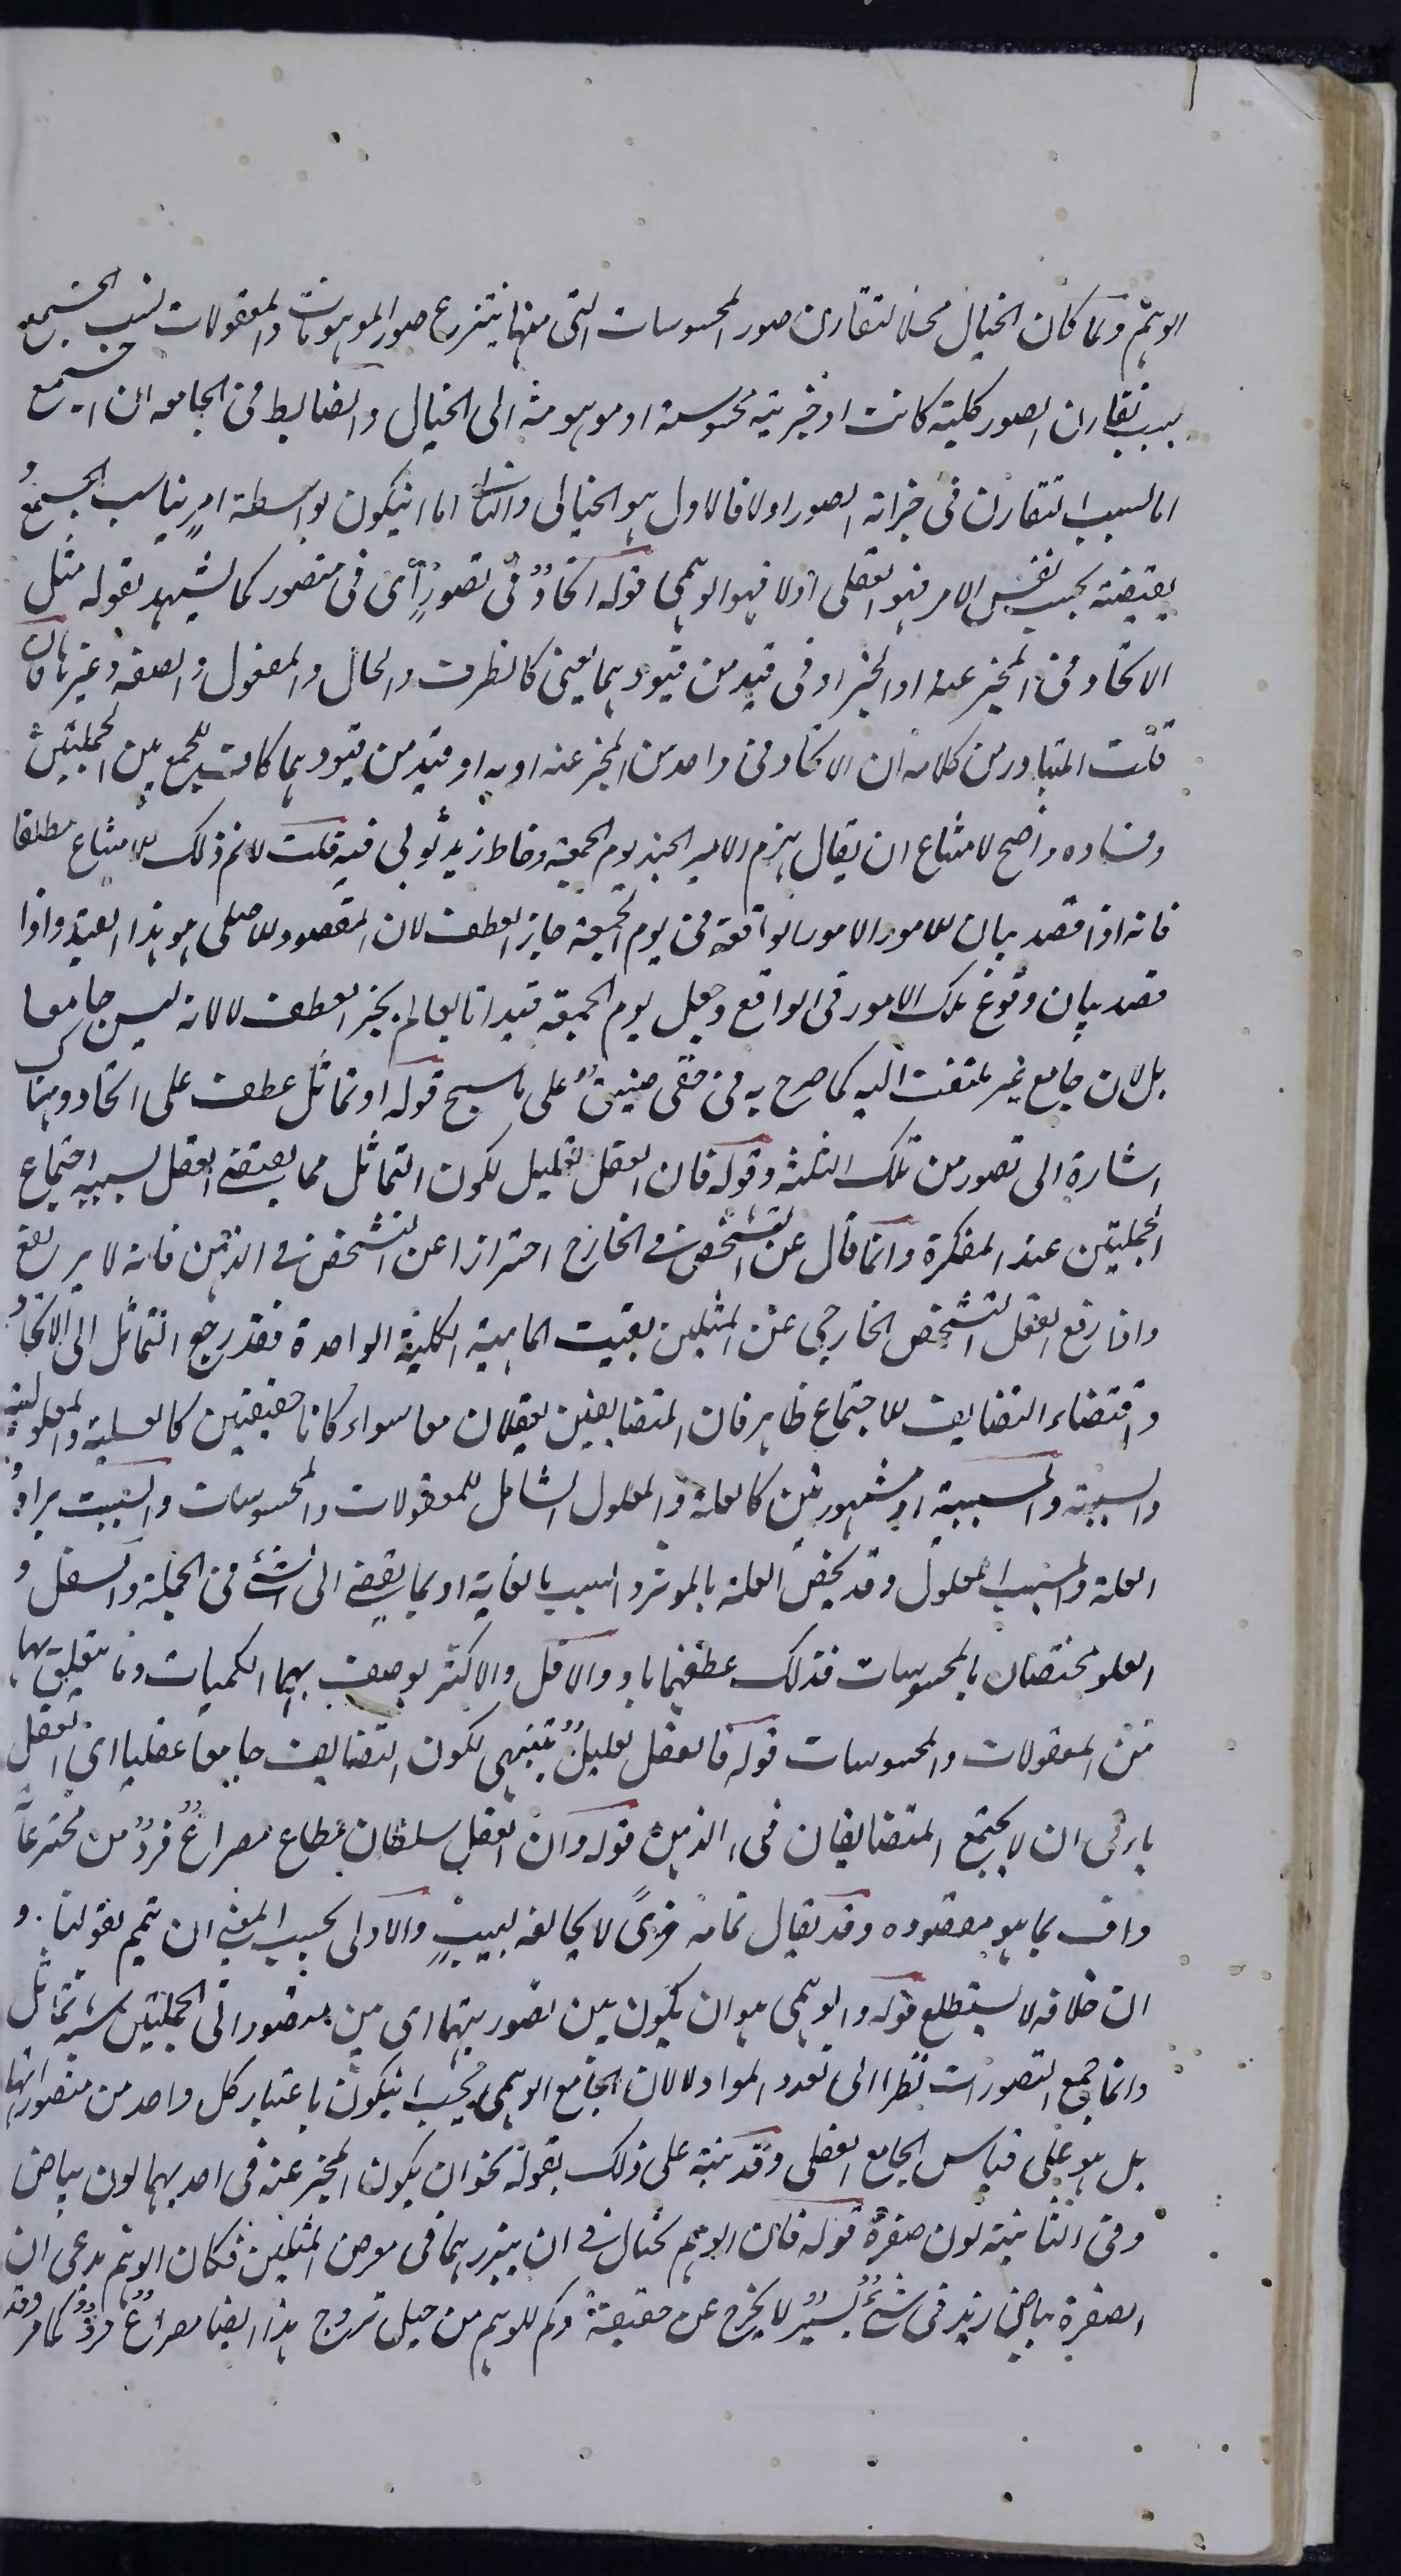 الوهم ولما كان الخيال محلا لتقارن صور المحسوسات التى منها ينتزع صور الموهومات والمعقولات نسب الجمع
بسبب تقارن الصور كلية كانت او جزئية محسوسة او موهومة الى الخيال والضابط فى الجامع ان الجمع
اما لسبب التقارن فى خزانة الصور اولا فالاول هو الخيالى والثانى اما ان يكون بواسطة امر يناسب الجمع و
يقتضيه بحسب نفس الامر فهو العقلى اولا فهو الوهمى قوله اتحاد فى تصور أى فى متصور كما يشهد بقوله مثل
الاتحاد فى المخبر عنه او الخبر او فى قيد من قيودهما يعنى كالظرف والحال والمفعول والصفة وغيرها فان
قلت المتبادر من كلامه ان الاتحاد فى واحد من المخبر عنه او به او قيد من قيودهما كاف للجمع بين الجملتين
وفساده واضح لامتناع ان يقال هزم الامير الجند يوم الجمعة وخاط زيد ثوبى فيه قلت لانم ذلك الامتناع مطلقا
فانه اذا قصد بيان الامور الواقعة فى يوم الجمعة جاز العطف لان المقصود الاصلى هو هذا القيد واذا
قصد بيان وقوع تلك الامور فى الواقع وجعل يوم الجمعة قيدا تابعا لم يجز العطف لا لانه ليس جامعا
بل لان جامع غير ملتفت اليه كما صرح به فى خفى ضيق على ما سيجئ قوله او تماثل عطف على اتحاد وهنا
اشارة الى تصور من تلك الثلثة وقوله فان العقل تعليل لكون التماثل مما يقتضى العقل لسببه اجتماع
الجملتين عند المفكرة وانما قال عن التشخص فى الخارج احترازا عن التشخص فى الذهن فانه لا يرتفع
واذا رفع العقل التشخص الخارجى عن المثلين بقيت الماهية الكلية الواحدة فقد رجع التماثل الى الاتحاد
واقتضاء التضايف للاجتماع ظاهر فان المتضايفين يعقلان معا سواء كانا حقيقيين كالعلية والمعلولية
والسببية والمسببية او مشهورين كالعلة والمعلول الشامل للمعقولات والمحسوسات والسبب يرادف
العلة والمسبب المعلول وقد يخص العلة بالموثر والسبب بالغاية او بما يفضى الى الشئ فى الجملة والسفل و
العلو مختصان بالمحسوسات فذلك عطفهما باو والاقل والاكثر يوصف بهما الكميات وما يتعلق بها
من المعقولات والمحسوسات قوله فالعقل تعليل تنبيهى لكون التضايف جامعا عقليا اى العقل
يابى ان لا يجتمع المتضايفان فى الذهن قوله وان العقل سلطان مطاع مصراع فرد من مخترعات
واف بما هو مقصوده وقد يقال تمامه لا يخالفه لبيب والاولى بحسب المعنى ان يتم بقولنا و
ان خلافه لا يستطاع قوله والوهمى هو ان يكون بين تصوريهما اى بين متصوراتى الجملتين شبه تماثل
وانما جمع التصورات نظرا الى تعدد المواد لا لان الجامع الوهمى يجب ان يكون باعتبار كل واحد من متصوراتها
بل هو على قياس الجامع العقلى وقد نبه على ذلك بقوله نحو ان يكون المخبر عنه فى احديهما لون بياض
وفى الثانية لون صفرة قوله فان الوهم يحتال فى ان يبرزهما فى معرض المثلين فكان الوهم يدعى ان
الصفرة بياض زيد فى شئ يسير لا يخرج عن حقيقة وكم للوهم من حيل تروج هذا ايضا مصراع فرد كما مر وقد